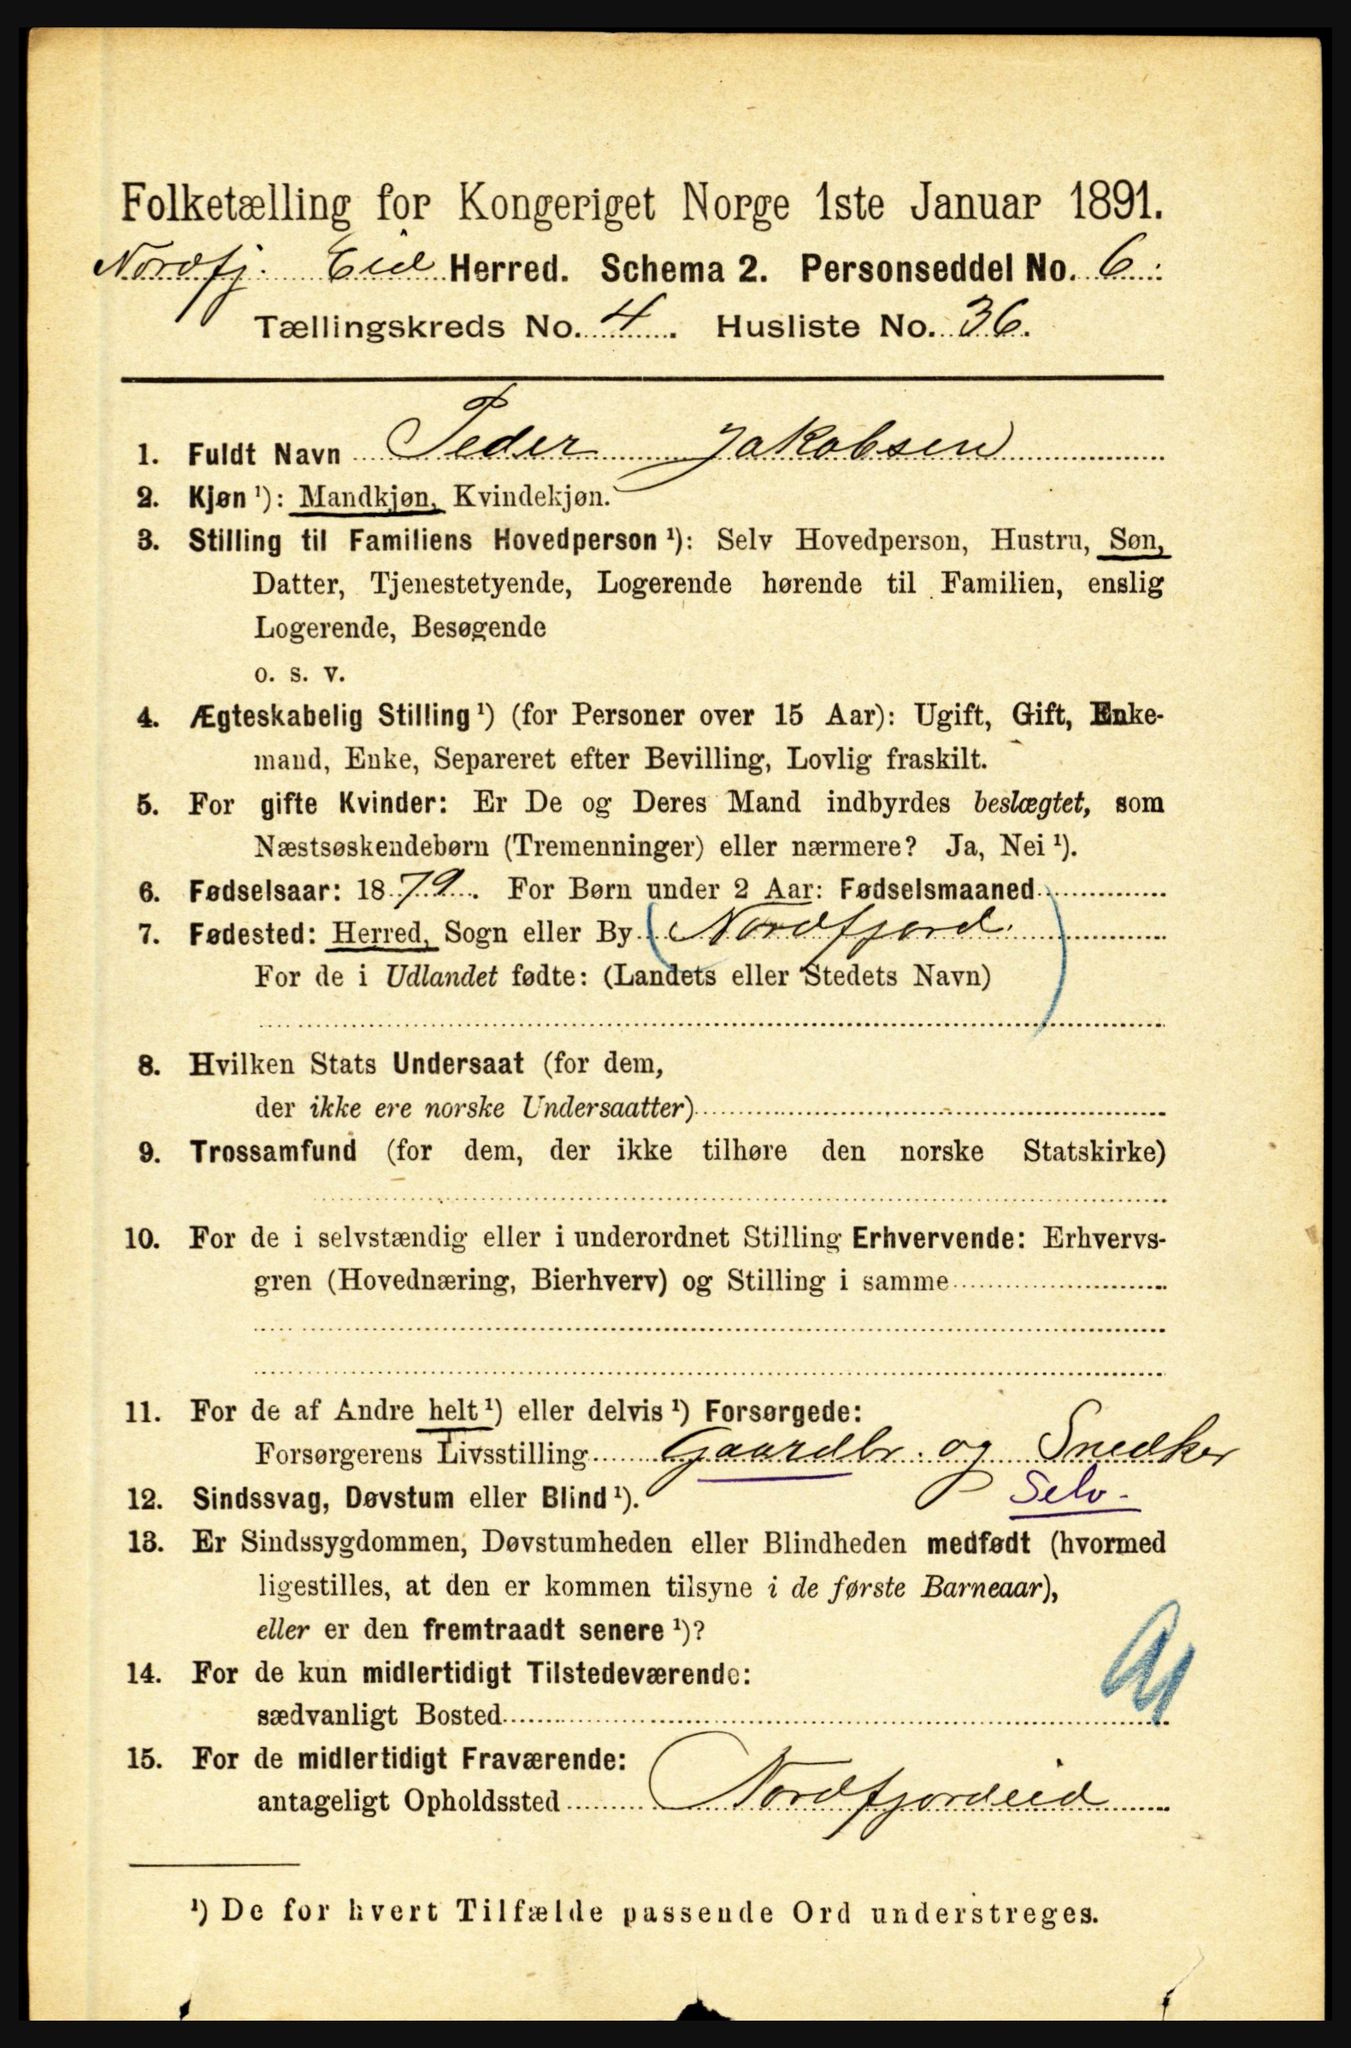 Folketælling for Kongeriget Norge 1ste Januar 1891.
Nordfj. Eid Herred. Schema 2. Personseddel No. 6.
Tællingskreds No. 4. Husliste No. 36.
1. Fuldt Navn Peder Jakobsen
2. Kjøn ¹): Mandkjøn, Kvindekjøn.
3. Stilling til Familiens Hovedperson ¹): Selv Hovedperson, Hustru, Søn,
Datter, Tjenestetyende, Logerende hørende til Familien, enslig
Logerende, Besøgende
o. s. v.
4. Ægteskabelig Stilling ¹) (for Personer over 15 Aar): Ugift, Gift, Enke-
mand, Enke, Separeret efter Bevilling, Lovlig fraskilt.
5. For gifte Kvinder: Er De og Deres Mand indbyrdes beslægtet, som
Næstsøskendebørn (Tremenninger) eller nærmere? Ja, Nei ¹).
6. Fødselsaar: 1879. For Børn under 2 Aar: Fødselsmaaned
7. Fødested: Herred, Sogn eller By (Nordfjord.)
For de i Udlandet fødte: (Landets eller Stedets Navn)
8. Hvilken Stats Undersaat (for dem,
der ikke ere norske Undersaatter)
9. Trossamfund (for dem, der ikke tilhøre den norske Statskirke)
10. For de i selvstændig eller i underordnet Stilling Erhvervende: Erhvervs-
gren (Hovednæring, Bierhverv) og Stilling i samme
11. For de af Andre helt ¹) eller delvis ¹) Forsørgede:
Forsørgerens Livsstilling Gaardbr. og Snedker
12. Sindssvag, Døvstum eller Blind ¹). Selv.
13. Er Sindssygdommen, Døvstumheden eller Blindheden medfødt (hvormed
ligestilles, at den er kommen tilsyne i de første Barneaar),
eller er den fremtraadt senere ¹)?
14. For de kun midlertidigt Tilstedeværende:
sædvanligt Bosted
15. For de midlertidigt Fraværende:
antageligt Opholdssted Nordfjordeid
¹) De for hvert Tilfælde passende Ord understreges.